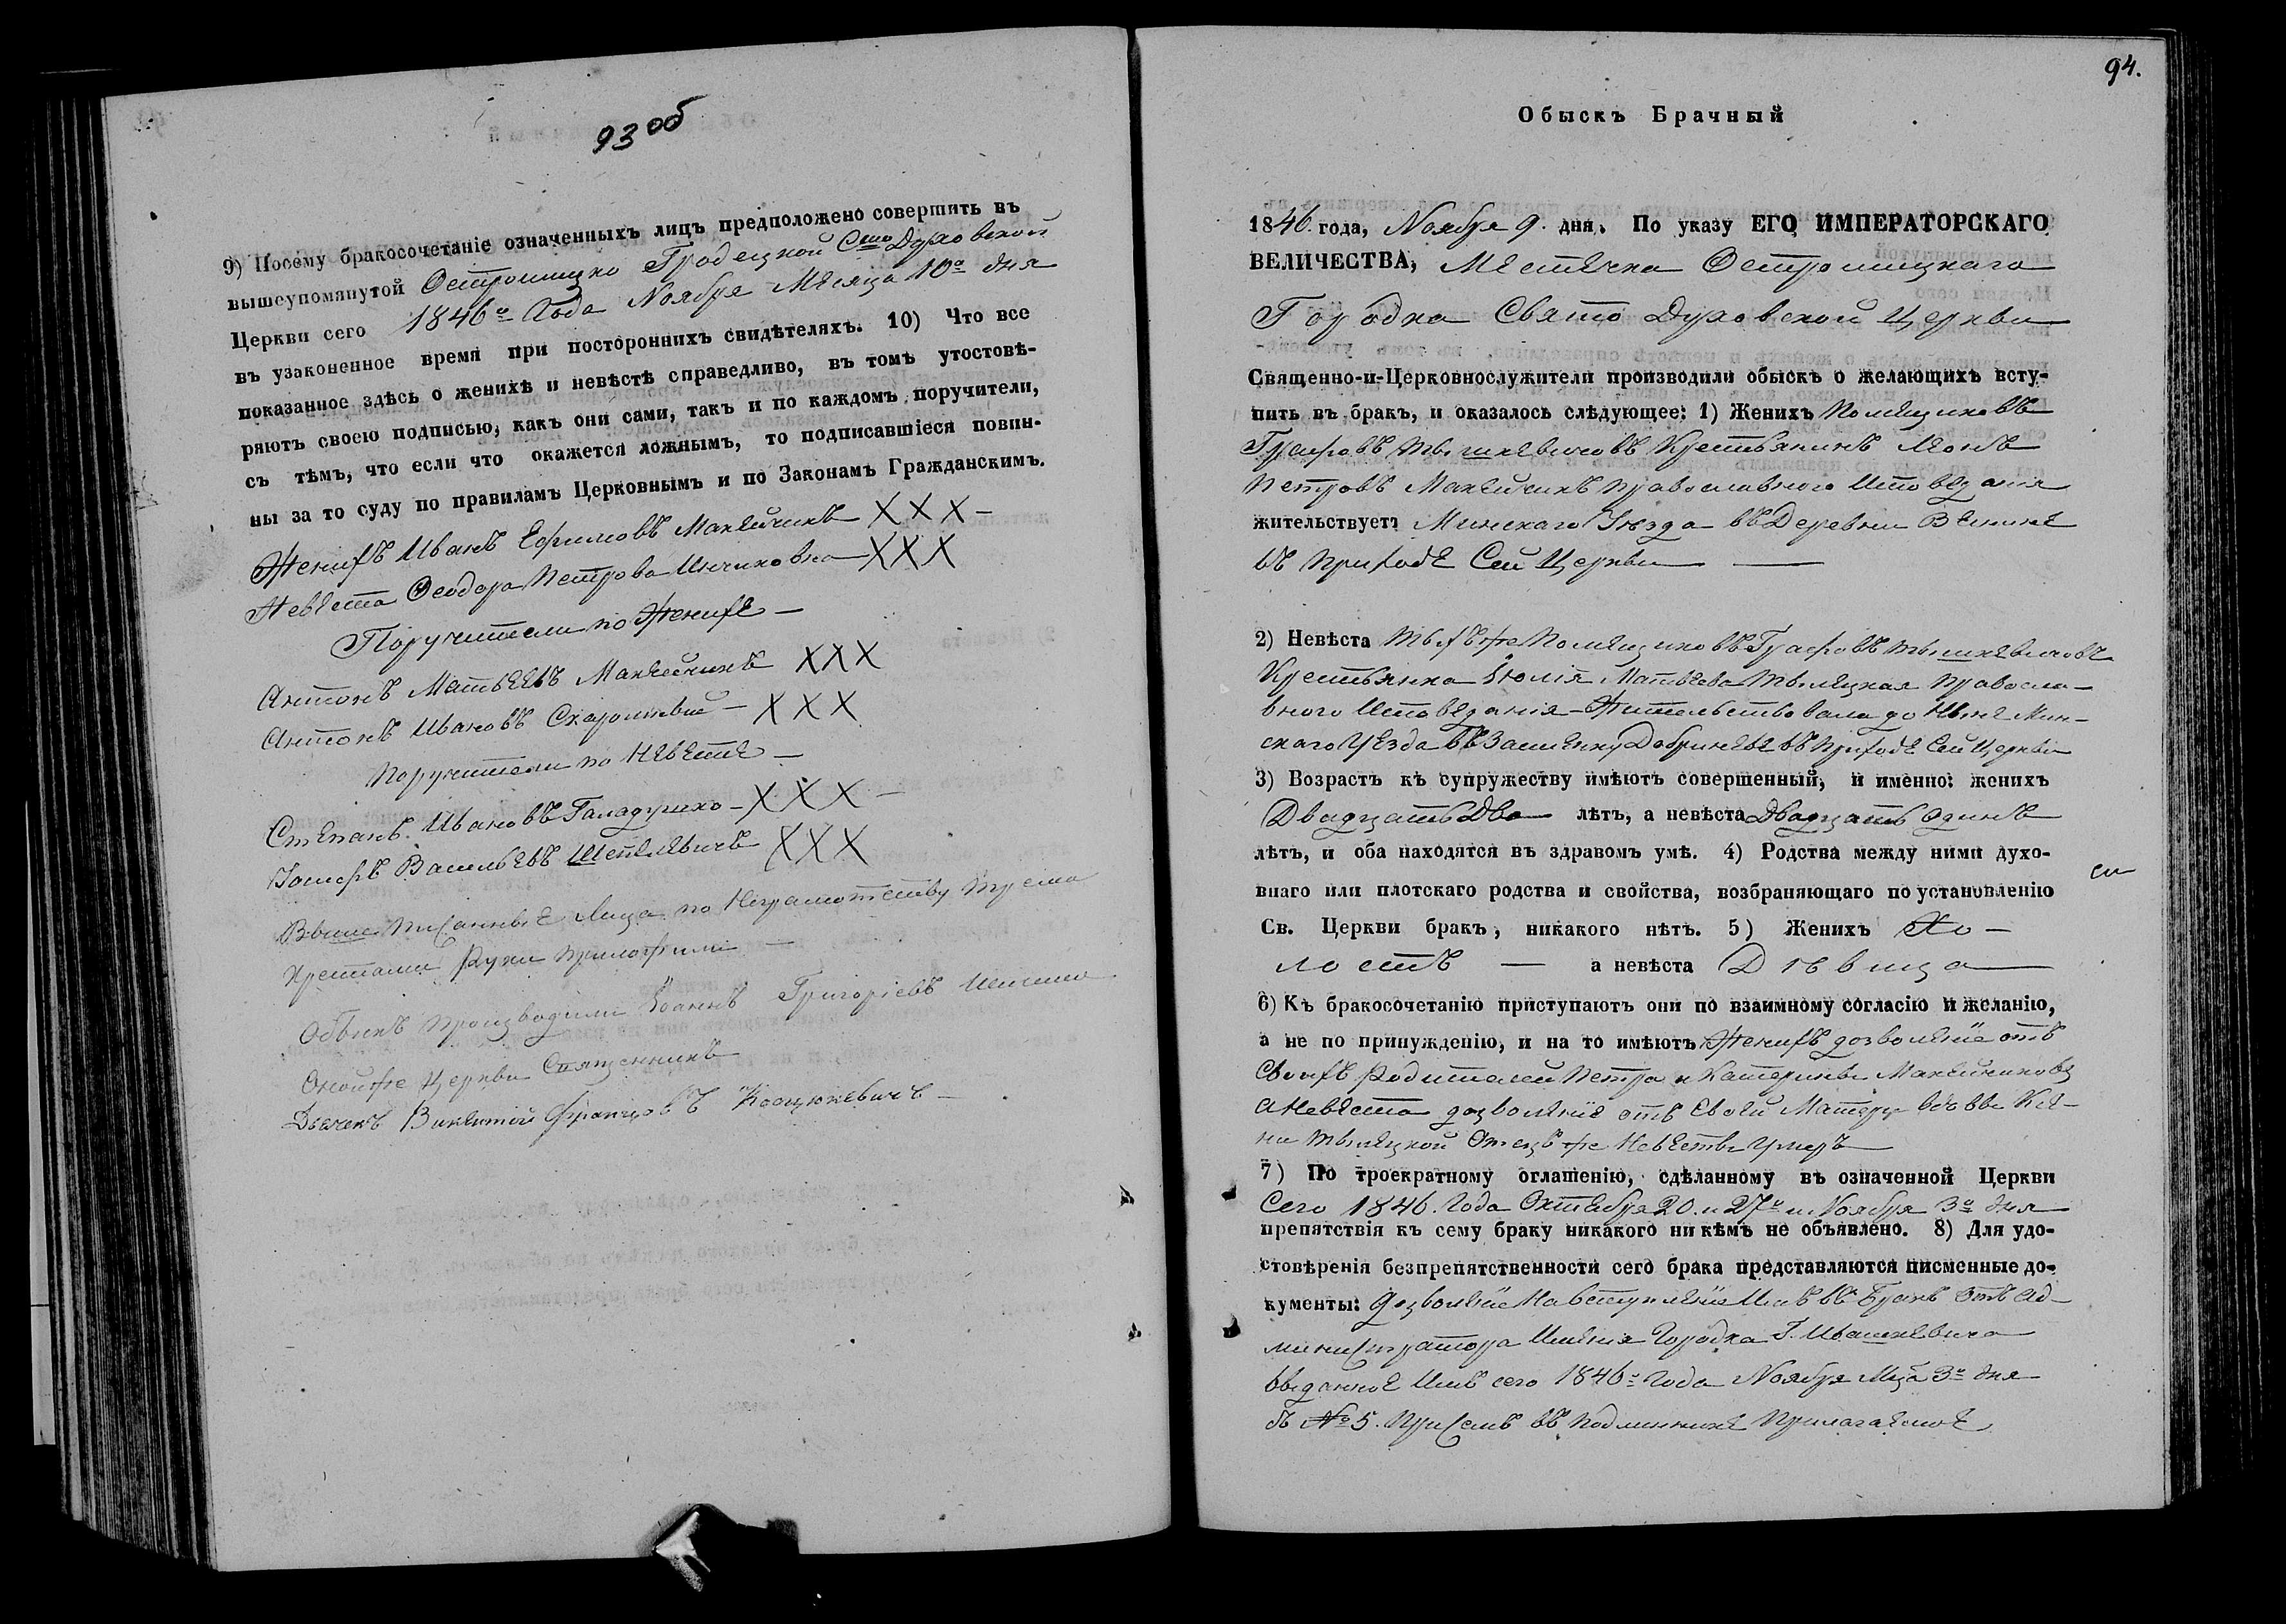 93 об
9) Посему бракосочетаніе означенныхъ лицъ предположено совершить въ
вышеупомянутой Остромицко Гродецкой Свято Духовской
Церкви сего 1846го Года Ноября Месяца 10го дня
въ узаконенное время при постороннихъ свидѣтеляхъ. 10) Что все
показанное здѣсь о женихѣ и невѣстѣ справедливо, въ томъ утостовѣ-
ряютъ своею подписью, какъ они сами, такъ и по каждомъ поручители,
съ тѣмъ, что если что окажется ложнымъ, то подписавшіеся повин-
ны за то суду по правиламъ Церковнымъ и по Законамъ Гражданскимъ.
Женихъ Иванъ Ефимовъ Макейчикъ ХХХ
Невеста Феодора Петрова ХХХ
Поручители по Женихе
Антонъ Матвеевъ Макейчикъ ХХХ
Антонъ Ивановъ ХХХ
Поручители по Невесте
Степанъ Ивановъ Галадушко ХХХ
Іосифъ Васильевъ Шепелевичъ ХХХ
Выше писанные Лица по Неграмотству тремя
Крестами Руки приложили
Обыскъ производили Іоаннъ Григоріевъ
Оной же Церкви Священникъ
Дьячекъ Викентій Францовъ Коцюкевичъ
94.
Обыскъ Брачный
1846. года, Ноября 9. дня. По указу ЕГО ИМПЕРАТОРСКАГО
ВЕЛИЧЕСТВА, Местечка Остромицкаго
Городка Свято Духовской Церкви
Священно-и-Церковнослужители производили обыскъ о желающихъ всту-
пить въ бракъ, и оказалось слѣдующее: 1) Женихъ Помещиковъ
Графовъ Тышкевичовъ Крестьянинъ Леонъ
Петровъ Макейчикъ православного Исповеданія
жительствуетъ Минскаго Уезда въ Деревни
въ приходе Сей Церкви
2) Невѣста техъ же Помещиковъ Графовъ Тышкевичовъ
Крестьянка Юлія Матвеева Тылецкая Правосла-
вного Исповеданія Жительствовала до Ныне Мин-
скаго Уезда въ Застенку Добриневе въ приходе Сей Церкви
3) Возрастъ къ супружеству имѣютъ совершенный, и именно: женихъ
Двадцать Два лѣтъ, а невѣста Двадцать одинъ
лѣтъ, и оба находятся въ здравомъ умѣ. 4) Родства между ними духо-
внаго или плотскаго родства и свойства, возбраняющаго по установленію
Св. Церкви бракъ, никакого нѣтъ. 5) Женихъ Хо-
лостъ а невѣста Дѣвица
6) Къ бракосочетанію приступаютъ они по взаимному согласію и желанію,
а не по принужденію, и на то имѣютъ Женихъ дозволеніе отъ
Своихъ Родителей Петра и Катерины Макейчиковъ
а Невеста дозволеніе отъ Своей Матери вдовы Ксе-
ни Тылецкой Отецъ же Невесты Умеръ
7) По троекратному оглашенію, сдѣланному въ означенной Церкви
Сего 1846. Года Октября 20. и 27го и Ноября 3го дня
препятствія къ сему браку никакого ни кѣмъ не объявлено. 8) Для удо-
стовѣренія безпрепятственности сего брака представляются писменные до-
кументы: дозволеніе На вступленіе Имъ въ Бракъ отъ Ад-
министратора Именія Городка Г. Ивашкевича
выданное Имъ сего 1846го Года Ноября Мца 3го дня
въ №5. при семъ въ подлиннике прилагаемое